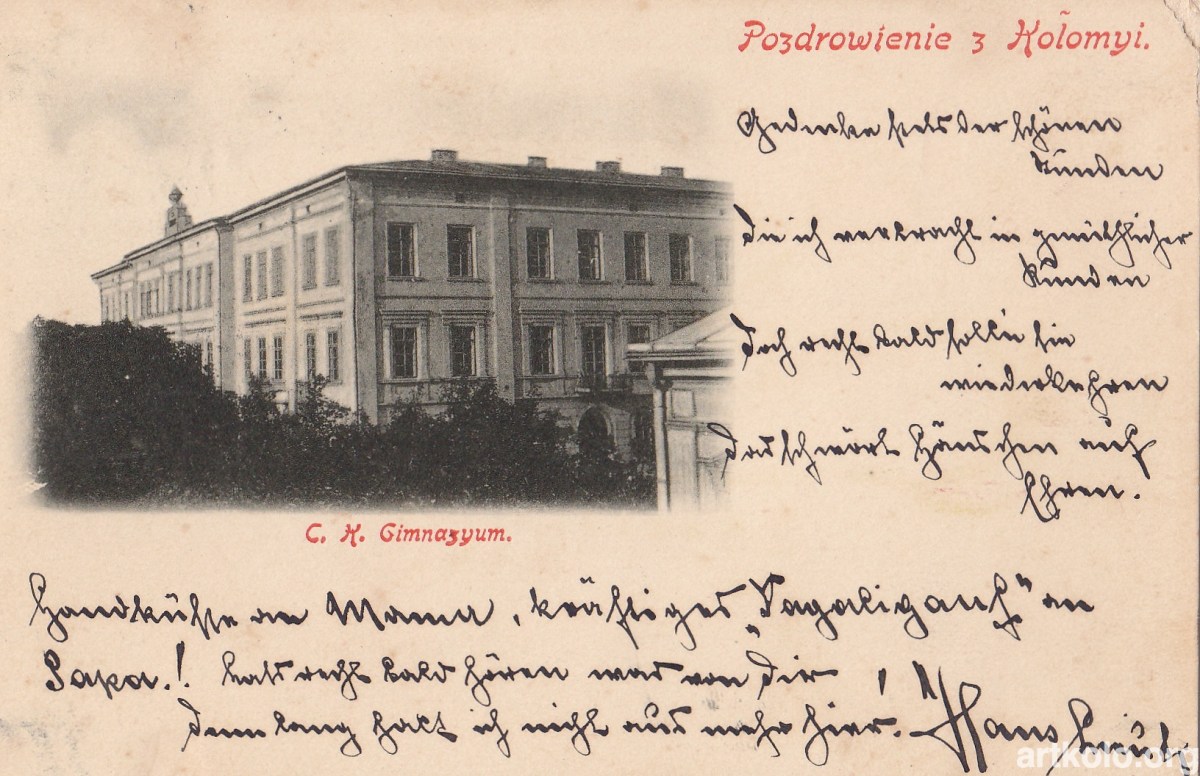 Pozdrowienie z Kołomyi.
Gedenke stets der schönen
Stunden
Die ich verbracht in gmüthlicher
Runden
Doch recht bald soll'n sie
wiederkehren
Das schwört Hänschen auf
Ehren.
C. K. Gimnazyum.
Handküsse an Mama, kräftiges an
Papa! Lass recht bald hören was von Dir
Denn lang halt ich nicht aus mehr hier! Hans
artkolo.org